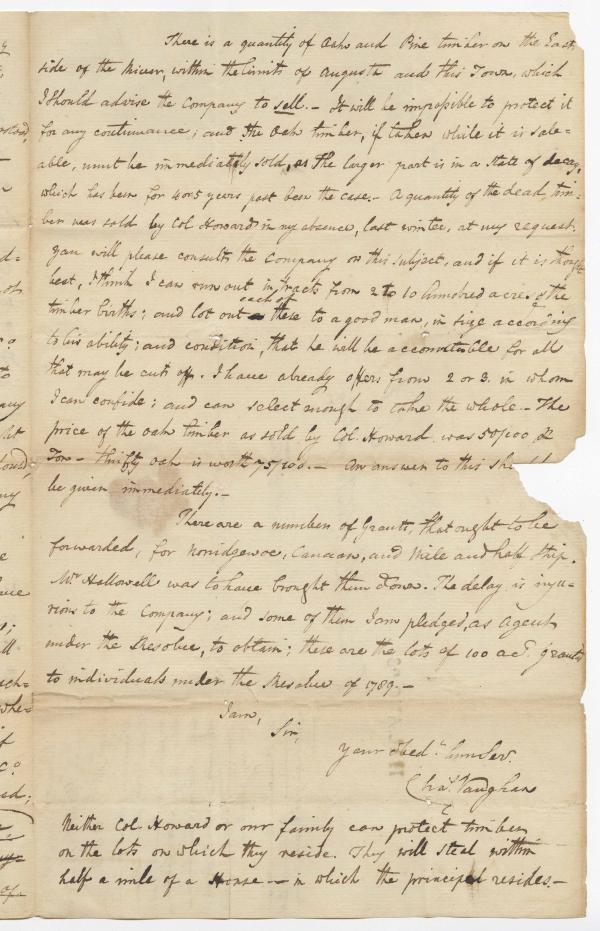 There is a quantity of Oak and Pine timber on the East
side of the River, within the limits of Augusta and this Town, which
I should advise the Company to sell. - It will be impossible to protect it
for any continuance; and the Oak timber, if taken while it is sale=
able, must be immediately sold, as the larger part is in a State of decay,
which has been for 4 or 5 years past been the case. - A quantity of the dead tim=
ber was sold by Col Howard in my absence, last winter, at my request.
you will please consult the Company on this subject, and if it is thought
best, I think I can run out in tracts from 2 to 10 hundred acres of the
timber births; and lot out each of these to a good man, in size according
to his ability; and condition, that he will be accountable for all
that may be cut off. I have already offers from 2 or 3. in whom
I can confide; and can select enough to take the whole - The
price of the oak timber as sold by Col. Howard was 50/100
Ton - thrifty oak is worth 75/100. - An answer to this
be given immediately. -
There are a number of Grants, that ought to be
forwarded, for Noridgewoc, Canaan, and Mile and half Strip.
Mr Hallowell was to have brought them Down. The delay is inju=
rious to the Company; and some of them I am pledged, as Agent
under the Resolve, to obtain; these are the lots of 100 acs. grants
to individuals under the Resolve of 1789. -
I am,
Sir,
Your Obed. hum Ser.
Chas. Vaughan
Neither Col. Howard or our family can protect timber
on the lots on which they reside. They will steal within
half a mile of a House - in which the principal resides. -